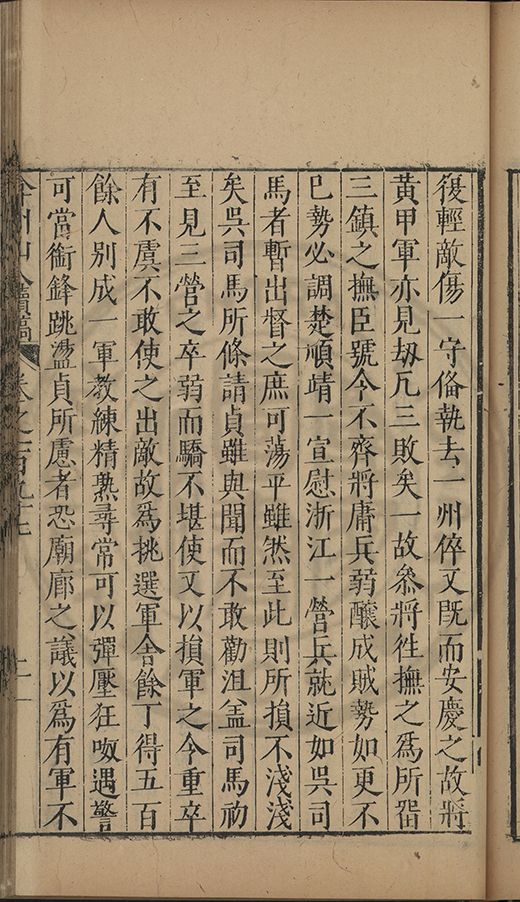 復輕敵傷一守俻執去一州倅又既而安慶之故將
黃甲軍亦見刼凡三敗矣一故叅將徃撫之爲所畱
三鎮之撫臣號令不齊將庸兵弱釀成賊勢如更不
巳勢必調楚頑靖一宣慰浙江一營兵就近如吳司
馬者暫出督之庶可蕩平雖然至此則所損不淺淺
矣吳司馬所條請貞雖與聞而不敢勸沮盖司馬初
至見三營之卒弱而驕不堪使又以損軍之令重卒
有不虞不敢使之出敵故爲挑選軍舍餘丁得五百
餘人别成一軍教練精熟尋常可以彈壓狂呶遇警
可當衝鋒跳盪貞所慮者恐廟廊之議以爲有軍不
弇州山人續稿 卷之一百九十七